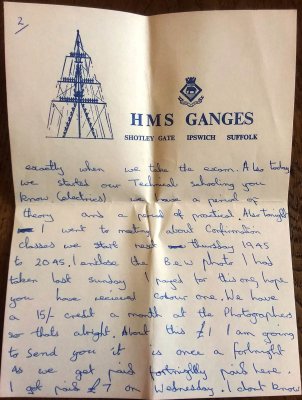 2
HMS GANGES
SHOTLEY GATE IPSWICH SUFFOLK
exactly when we take the exam. Also today
we started our Technical schooling you
know, (electrics) we have a period of
theory and a period of practical. Also tonight
I went to meeting about Confirmation
classes we start next Thursday 1945
to 2045. I enclose the B&W photo I had
taken last sunday I payed for this one, hope
you have recieved colour one. We have
a 15/- credit a month at the Photographers
so thats alright. About this £1 I am going
to send you it is once a fortnight
as we get paid fortnightly paid here.
I got paid £7 on Wednesday. I dont know